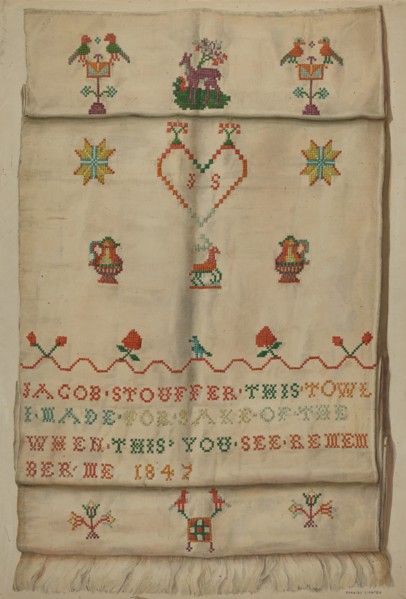 J S
JACOB·STOUFFER·THIS·TOWL
I·MADE·FOR·SAKE·OF·THE
WHEN·THIS·YOU·SEE·REMEM
BER·ME 1847